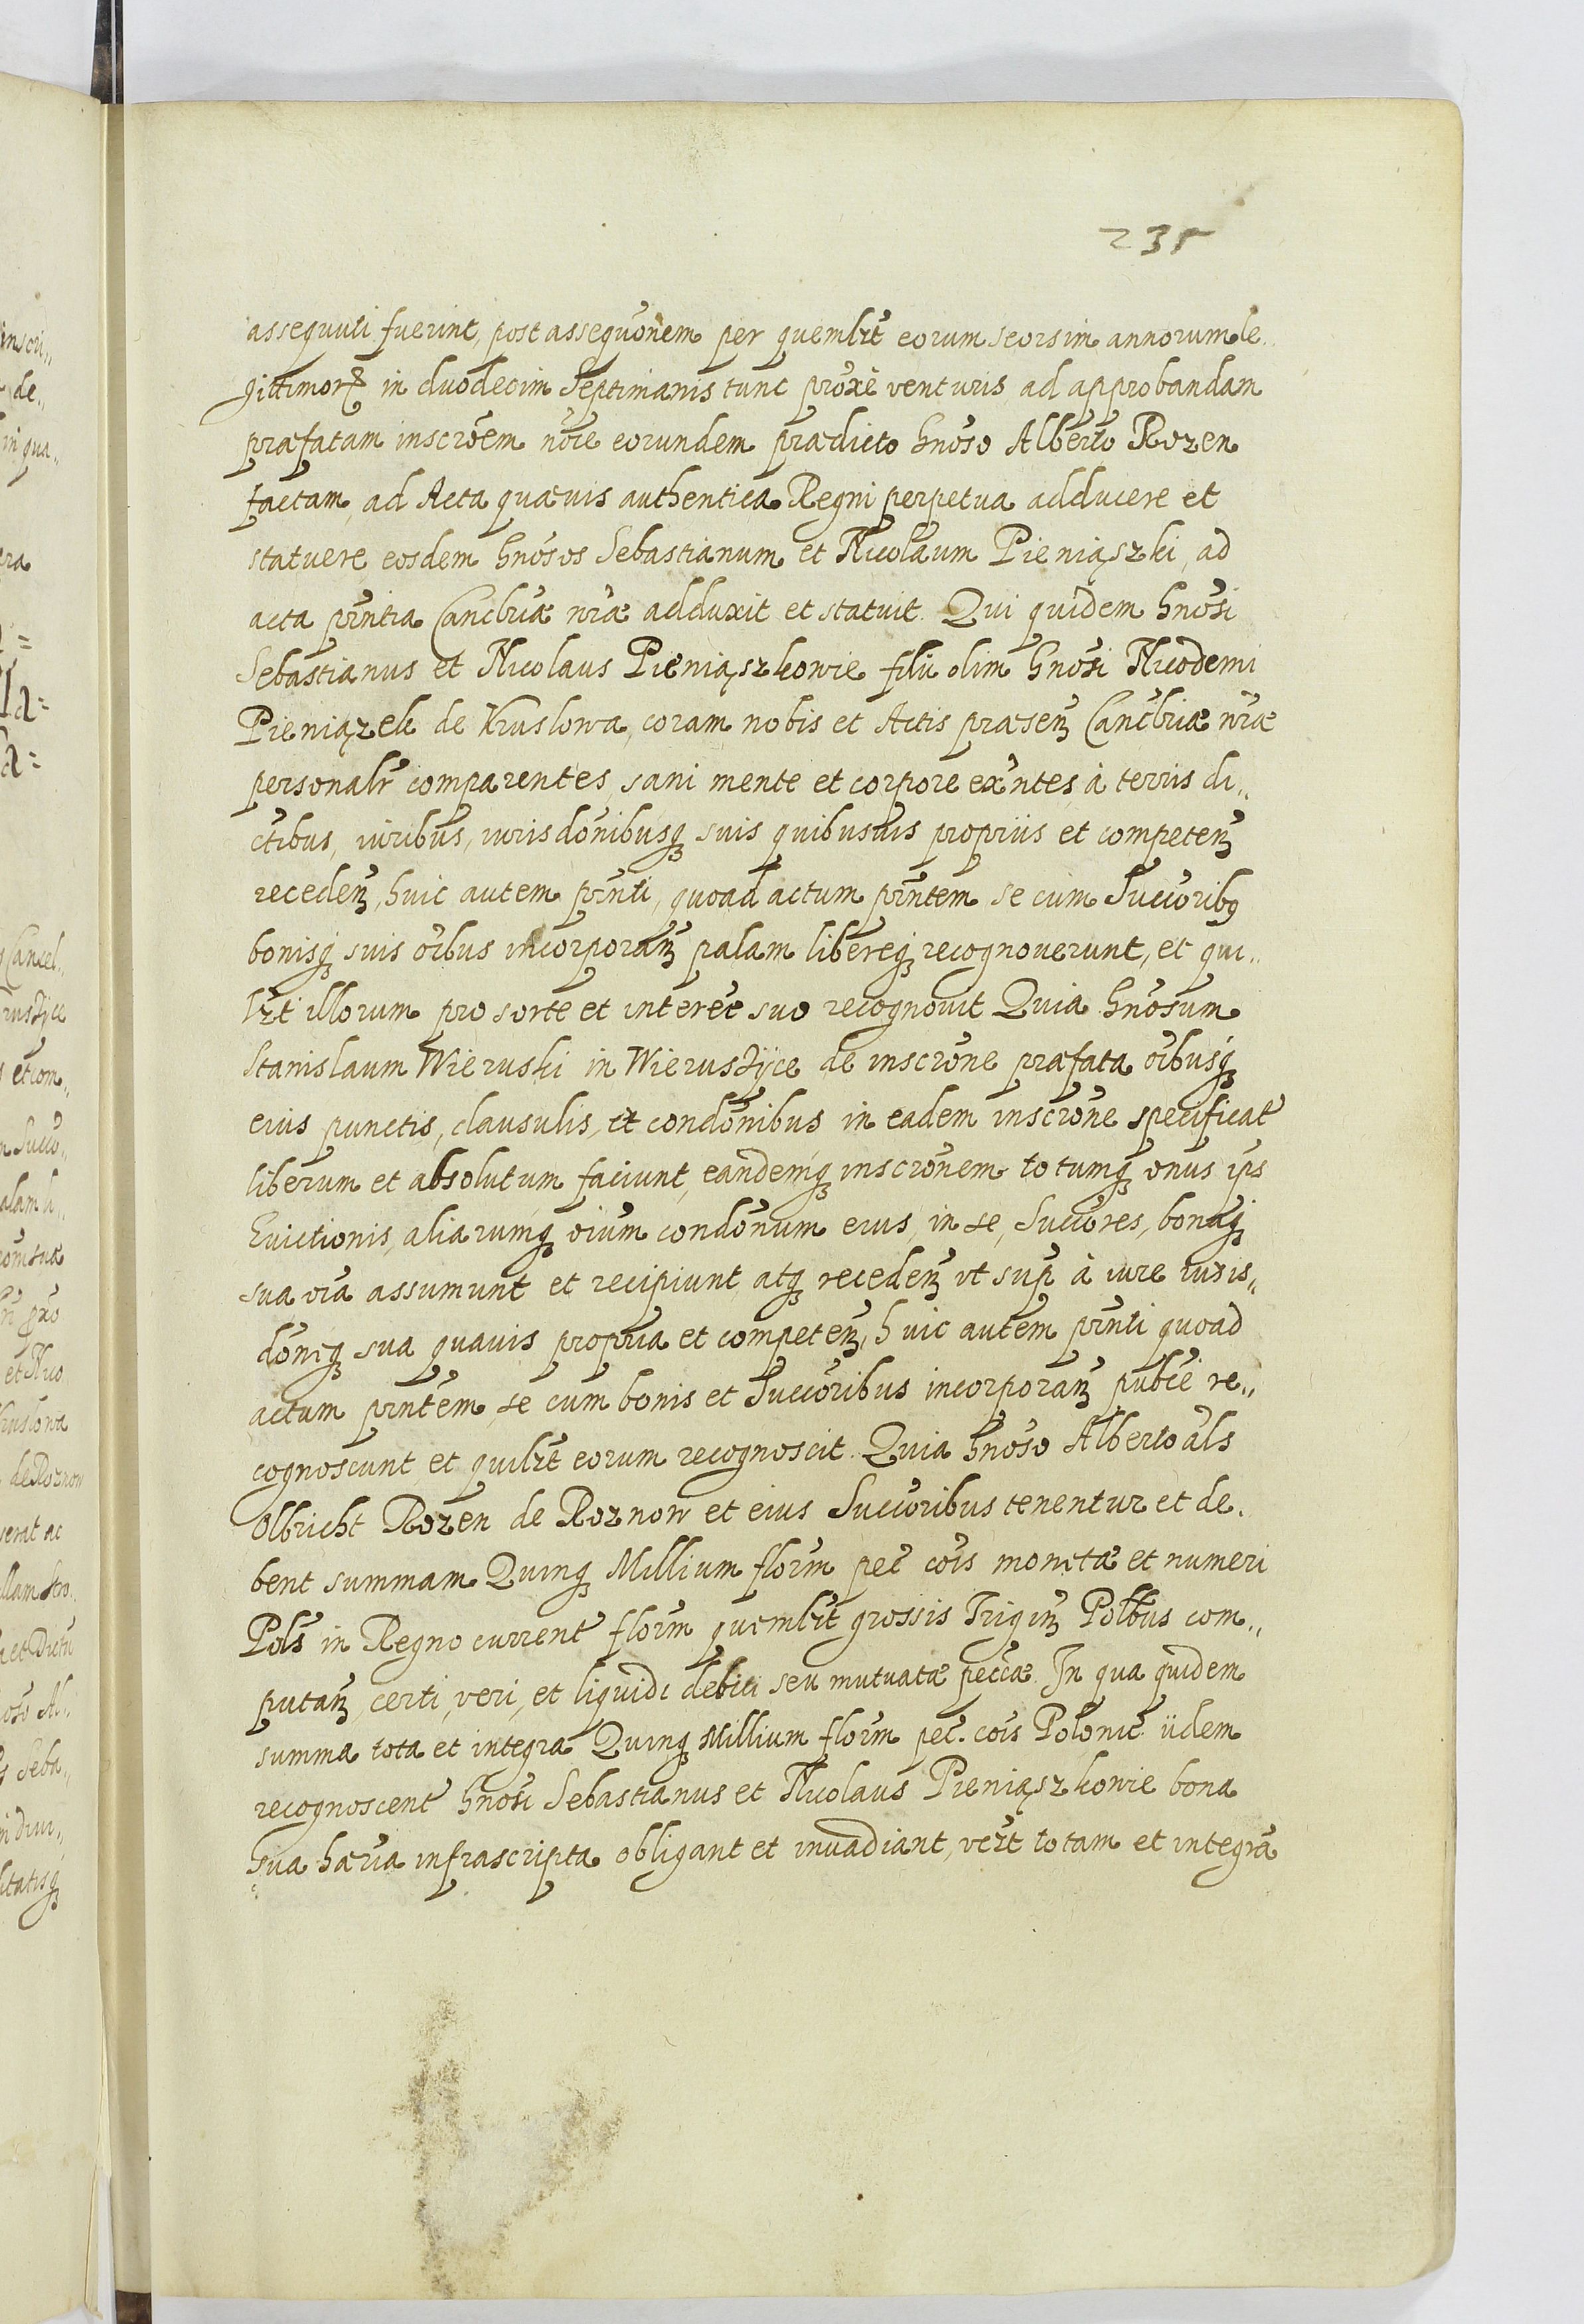 235
assequuti fuerint, post assequõnem per quemlžt eorum seorsim annorum le..
gittimorꝝ in duodecim Septimanis tunc proxè venturis ad approbandam
præfatam inscrõem nõie eorundem prædicto Gñoso Alberto Rozen
factam, ad Acta quæuis authentica Regni perpetua adducere et
statuere, eosdem Gñosos Sebastianum et Nicolaum Pieniąszki, ad
acta pñntia Cancĺriæ ñræ adduxit et statuit. Qui quidem Gñosi
Sebastianus et Nicolaus Pieniąszkowie filii olim Gñosi Nicodemi
Pieniązek de Kruslowa, coram nobis et Actis præsenꝫ Cancĺriæ ñræ
personalr̃ comparentes, sani mente et corpore exñtes, à terris di..
ctibus, iuribus, iurisdõnibusqꝫ suis quibusuis propriis et competenꝫ
recedenꝫ, huic autem pñnti, quoad actum pñntem se cum Succõribꝰ
bonisqꝫ suis õibus incorporanꝫ palam libereqꝫ recognouerunt, et qui..
lžt illorum pro sorte et interẽe suo recognouit Quia Gñosum
Stanislaum Wieruski in Wierusżyce de inscrõne præfata õibusqꝫ
eius punctis, clausulis, et condõnibus in eadem inscrõne specificat̃
liberum et absolutum faciunt, eandemqꝫ inscrõnem totumqꝫ onus ip̃s
Euictionis, aliarumqꝫ õium condõnum eius, in se, Succõres, bonaqꝫ
sua õia assumunt et recipiunt, atqꝫ recedenꝫ vt sup̃ à iure iuris..
dõneqꝫ sua quauis propria et competenꝫ, huic autem pñnti quoad
actum pñntem, se cum bonis et Succõribus incorporanꝫ publcè re..
cognoscunt, et quilžt eorum recognoscit. Quia Gñoso Alberto als̃
Olbricht Rozen de Roznow et eius Succõribus tenentur et de..
bent summam Quinqꝫ Millium florñ pec̃ cõis monetæ et numeri
Pols̃ in Regno current̃ florñ quemlžt grossis Triginꝫ Polbus com..
putanꝫ, certi, veri, et liquidi debiti seu mutuatæ pecc̃æ. In qua quidem
summa tota et integra Quinqꝫ Millium florñ pec̃. cõis Polonic̃ iidem
recognoscent̃ Gñosi Sebastianus et Nicolaus Pieniąszkowie bona
sua hæria infrascripta obligant et inuadiant, vežt totam et integrã